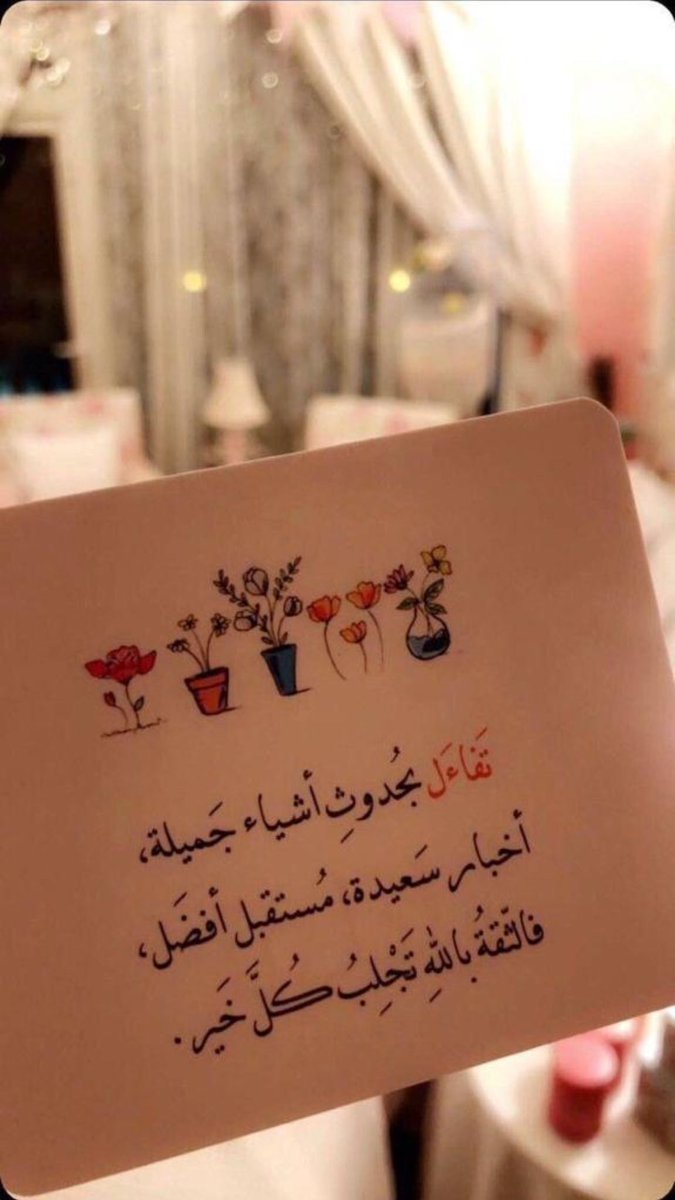 تَفاءَل بحُدوثِ أشياء جَميلة،
أخبار سَعيدة، مُستقبل أفضَل،
فالثّقةُ باللهِ تَجْلِبُ كُلَّ خَير.